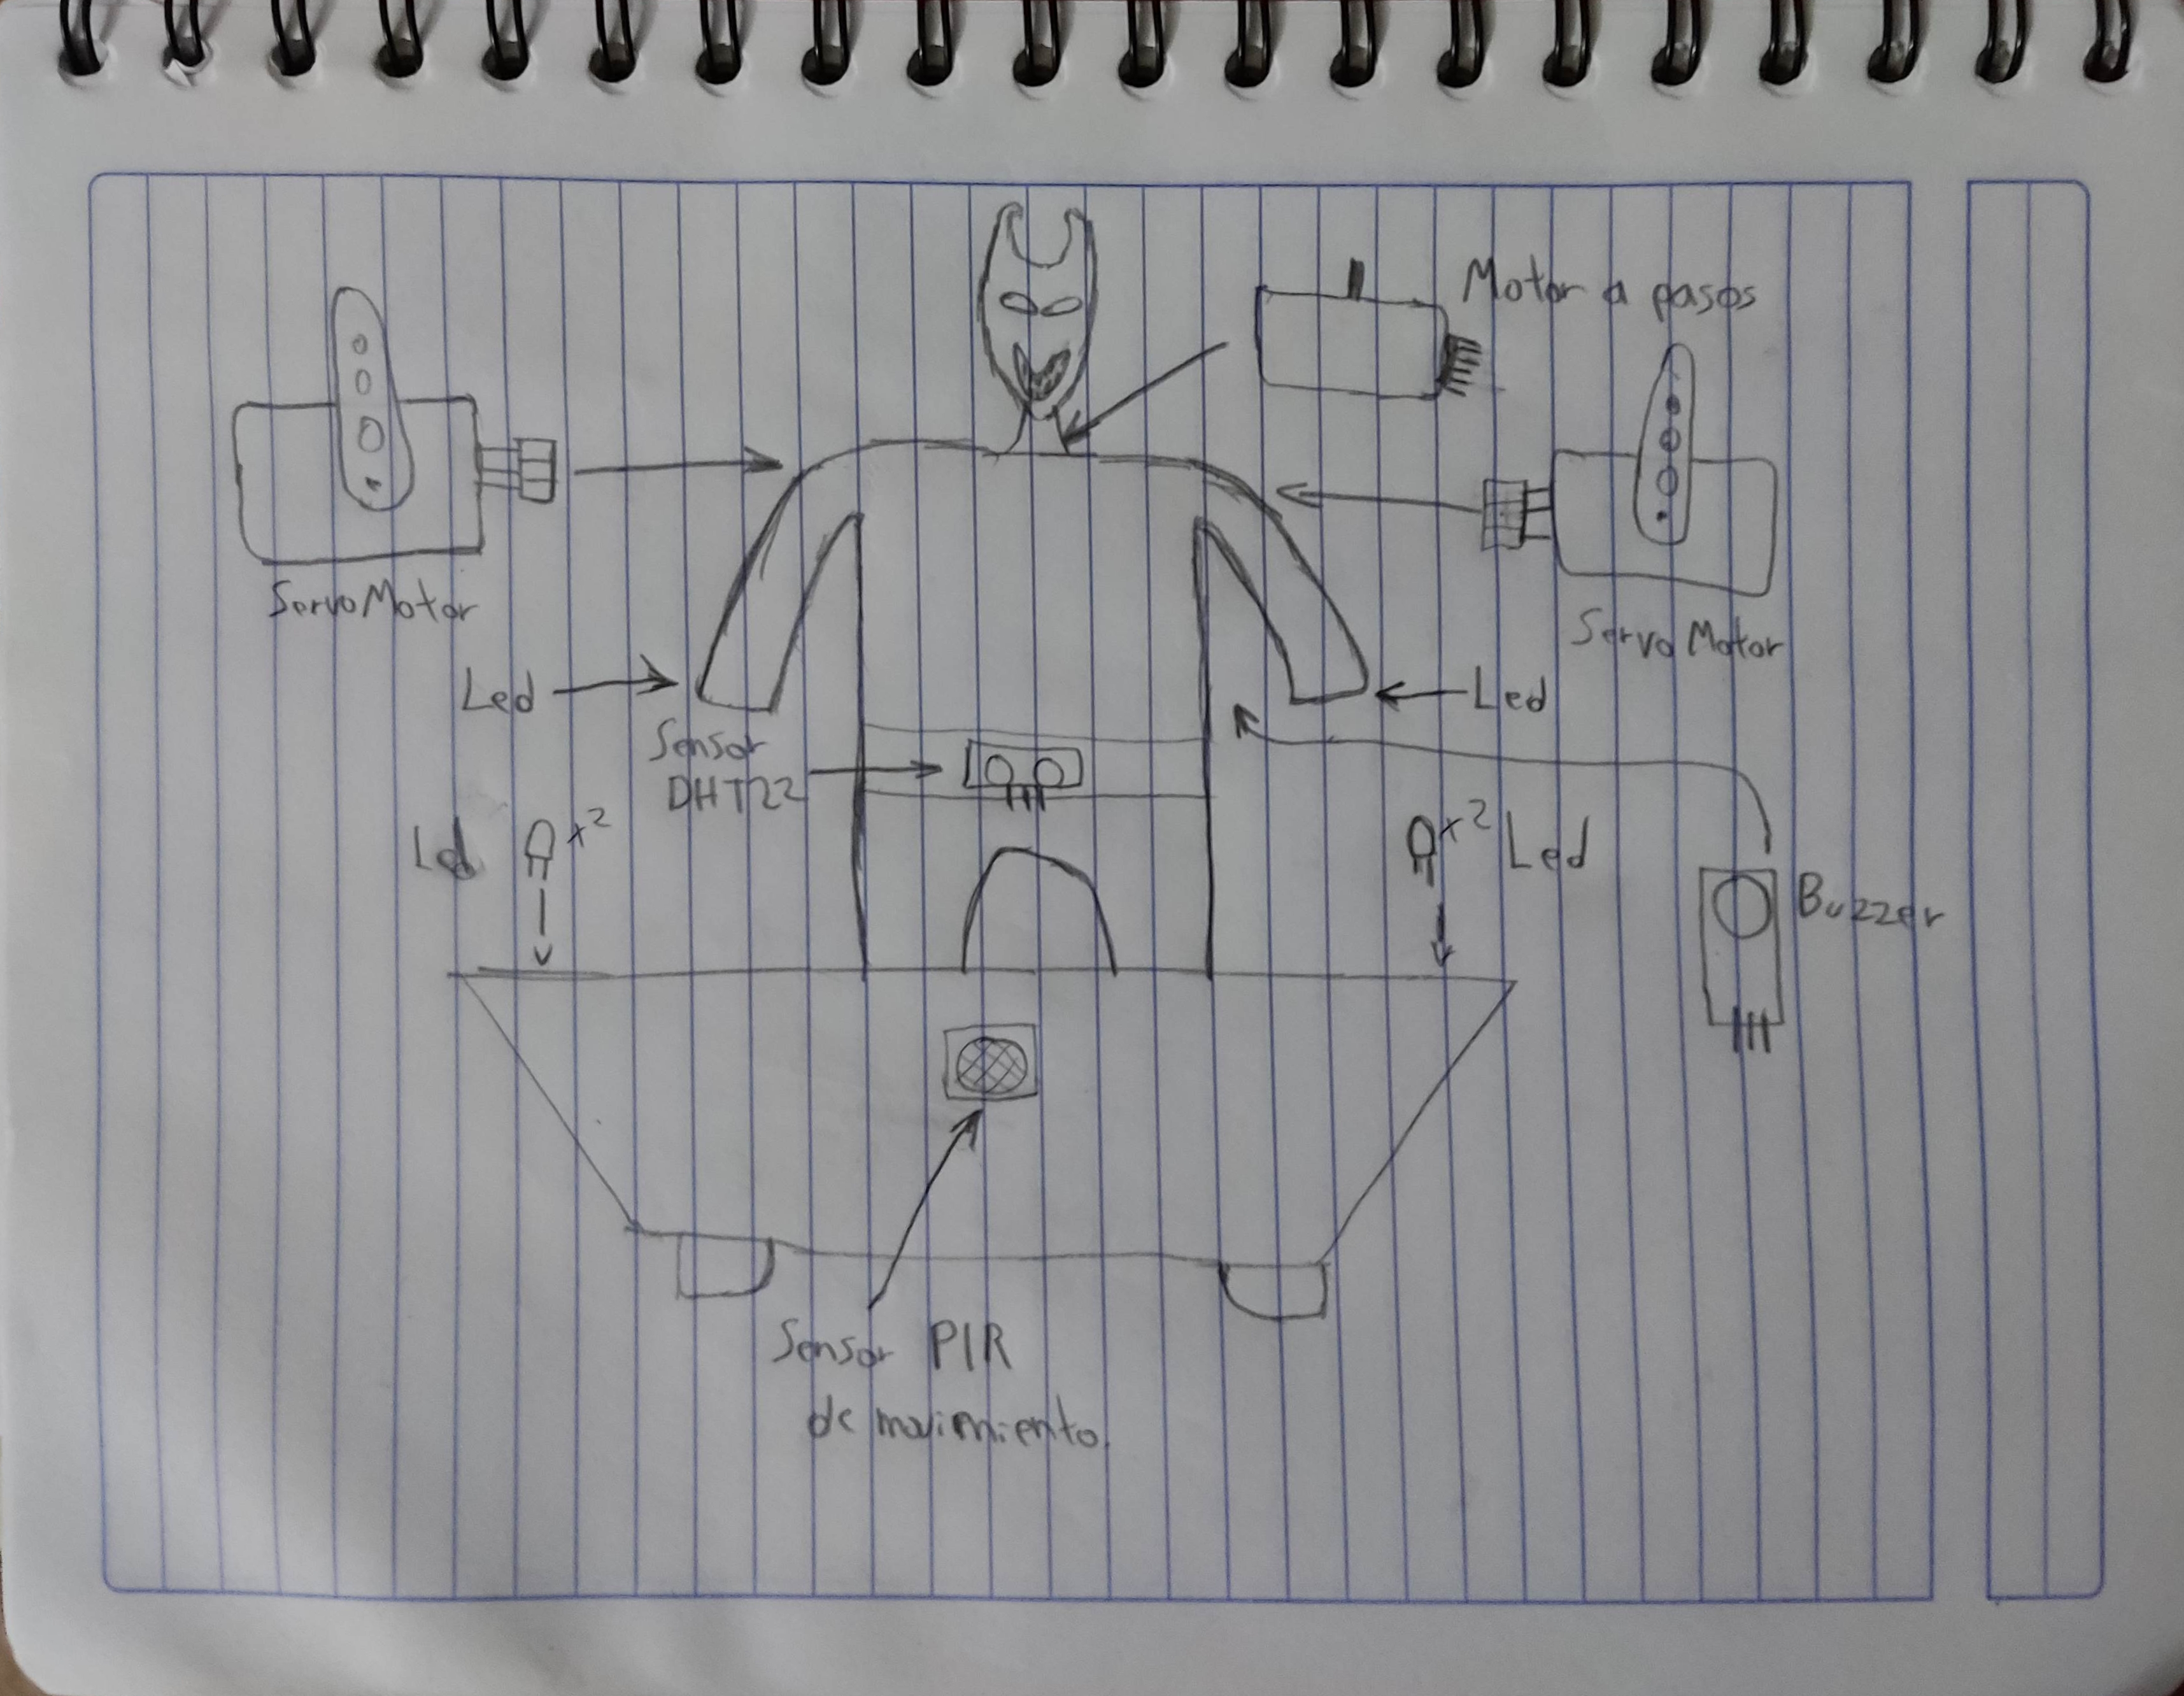 Motor a pasos
ServoMotor
Servo Motor
Led
Led
Sensor
DHT22
Led x2
x2 Led
Buzzer
Sensor PIR
de movimiento.